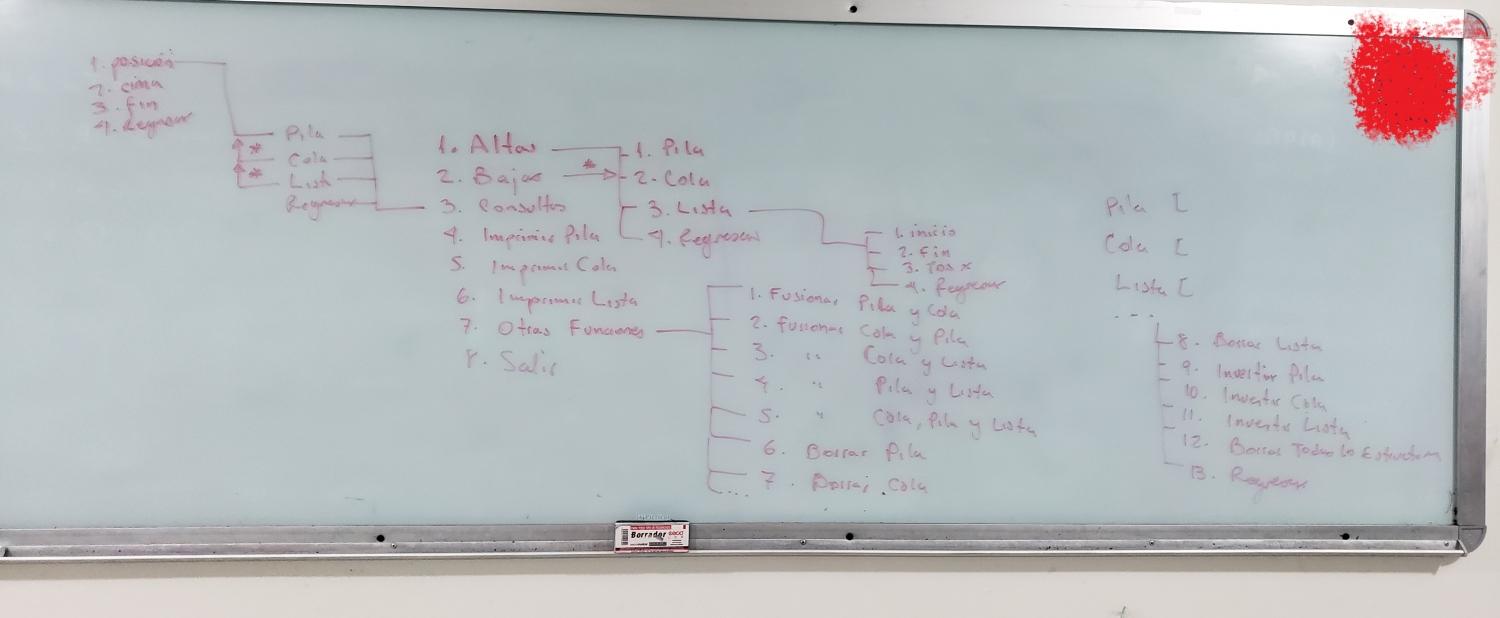 1. posición
2. cima
3. fin
4. Regresar
Pila
* Cola
* Lista
Regresar
1. Altas
2. Bajas *
3. Consultas
4. Imprimir Pila
5. Imprimir Cola
6. Imprimir Lista
7. Otras Funciones
8. Salir
1. Pila
2. Cola
3. Lista
4. Regresar
1. inicio
2. Fin
3. Pos x
4. Regresar
1. Fusionar Pila y Cola
2. Fusionar Cola y Pila
3. " Cola y Lista
4. " Pila y Lista
5. " Cola, Pila y Lista
6. Borrar Pila
7. Borrar Cola
...
Pila [
Cola [
Lista [
...
8. Borrar Lista
9. Invertir Pila
10. Invertir Cola
11. Invertir Lista
12. Borrar Todas la Estructura
13. Regresar
Borrador